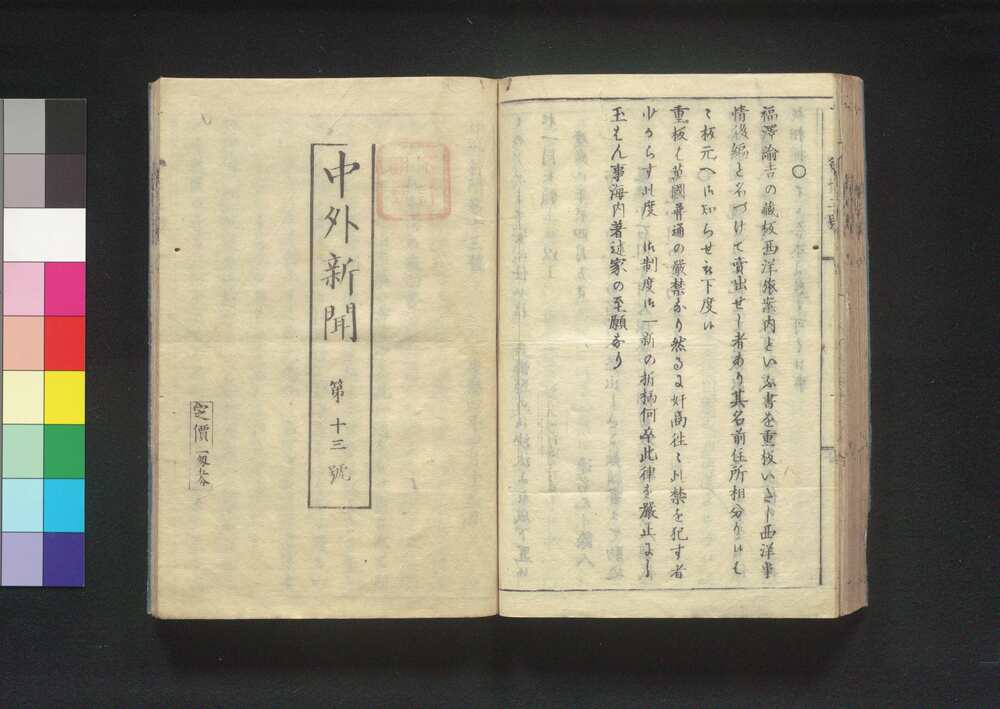 ○
福澤諭吉の藏板西洋旅案内といふ書を重板いたし西洋事
情後編と名づけて賣出せし者あり其名前住所相分り候も
重板は萬國普通の嚴禁なり然るに奸商徃々此禁を犯す者
少からす此度御制度御一新の折柄何卒此律を嚴正にし
玉はん事海内著述家の至願なり
中外新聞
第十三號
定價